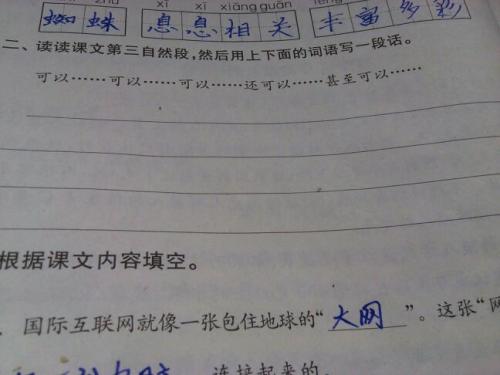 xī xī xiāng guān
蜘蛛 息息相关 丰富多彩
二、读读课文第三自然段,然后用上下面的词语写一段话。
可以……可以……可以……还可以……甚至可以……
根据课文内容填空。
国际互联网就像一张包住地球的“大网”。这张“网
连接起来的。